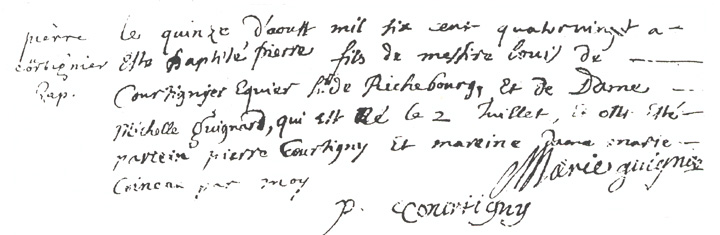 pierre
cortignier
Bap.
le quinze d'aoust mil six cent quatervingt a
Esté Baptisé pierre fils de messire Louis de
Courtignier Equier Sr de Richebourg, Et de Dame
Michelle Guignard, qui est Né le 2 Juillet, Et ont Esté
parrein pierre Courtigny Et mareine dame marie
par moy
Marie guignier
p. Courtigny